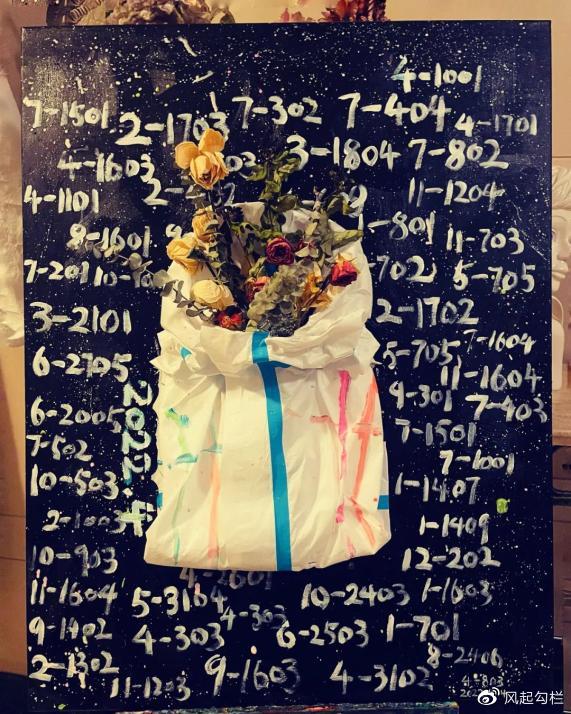 4-1001
7-1501 2-1703 7-302 7-404 4-1701
4-1603 3-1804 7-802
4-1101 11-1204
8-1601 -801 11-703
7-201 702 5-705
3-2101 2-1702
5-705 7-1604
6-2705 11-1604
9-301 7-403
6-2005 7-1501
7-502 7-1001
10-503 1-1407
2022.4
2-1003 1-1409
10-903 12-202
4-2601
11-1604 5-3104 10-2403 1-1603
4-303
9-1402 4-303 6-2503 1-701
2-1302 8-2406
11-1203 9-1603 4-3102 4-803
风起勾栏